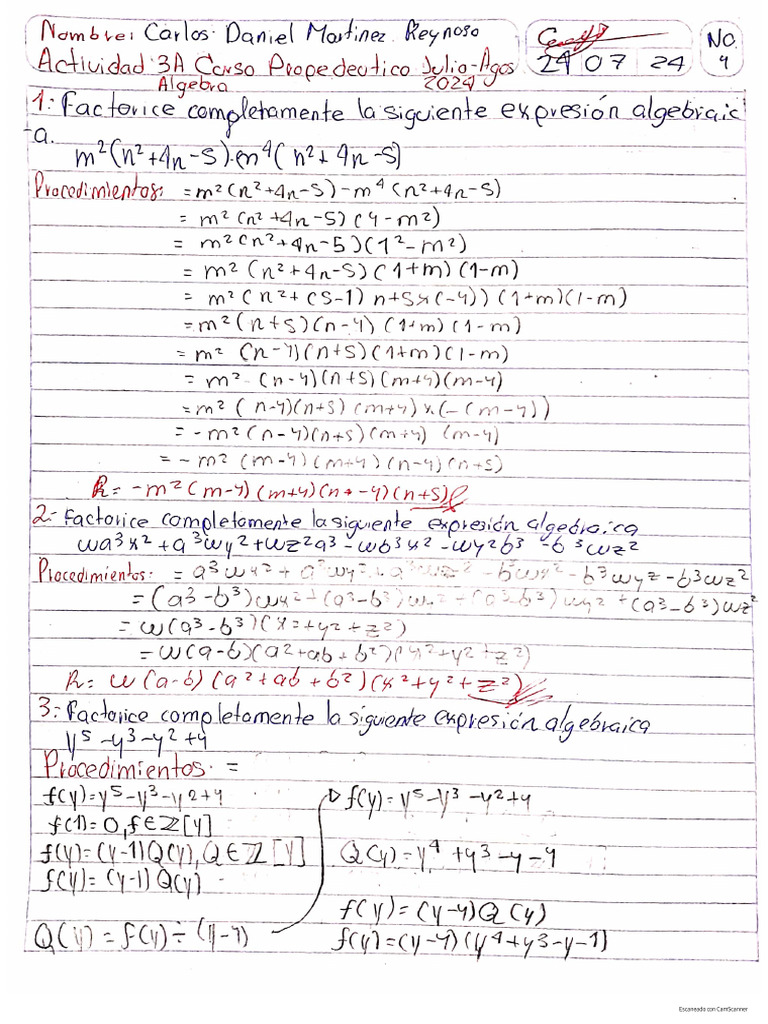 Nombre: Carlos Daniel Martinez Reynoso
Actividad 3A Curso Propedeutico Julio-Agos
Algebra 2024
29 07 24
NO.
4
1: Factorice completamente la siguiente expresión algebraic
-a.
m²(n²+4n-5)-m⁴(n²+4n-5)
Procedimientos: = m²(n²+4n-5)-m⁴(n²+4n-5)
= m²(n²+4n-5)(4-m²)
= m²(n²+4n-5)(1²-m²)
= m²(n²+4n-5)(1+m)(1-m)
= m²(n²+(5-1)n+5x(-4))(1+m)(1-m)
= m²(n+5)(n-4)(1+m)(1-m)
= m² (n-4)(n+5)(1+m)(1-m)
= m² (n-4)(n+5)(m+4)(m-4)
= m² (n-4)(n+5)(m+4)x(-(m-4))
= -m²(n-4)(n+5)(m+4)(m-4)
= -m² (m-4)(m+4)(n-4)(n+5)
R= -m²(m-4)(m+4)(n+-4)(n+5)
2: Factorice completamente la siguiente expresión algebraica
wa³x²+a³wy²+wz²a³-wb³x²-wy²b³-b³wz²
Procedimientos: = a³wx²+a³wy²+a³wz²-b³wx²-b³wyz-b³wz²
= (a³-b³)wx²+(a³-b³)wx²+(a³-b³)wy²+(a³-b³)wz²
= w(a³-b³)(x=+y²+z²)
= w(a-b)(a²+ab+b²)(x²+y²+z²)
R= w(a-b)(a²+ab+b²)(x²+y²+z²)
3: Factorice completamente la siguiente expresión algebraica
y⁵-y³-y²+4
Procedimientos: =
f(y)=y⁵-y³-y²+4
f(1)=0, f∈ℤ[y]
f(y)=(y-1)Q(y), Q∈ℤ[y]
f(y)=(y-1)Q(y)
Q(y)=f(y)÷(y-4)
f(y)=y⁵-y³-y²+4
Q(y)=y⁴+y³-y-4
f(y)=(y-4)Q(y)
f(y)=(y-4)(y⁴+y³-y-1)
Escaneado con CamScanner